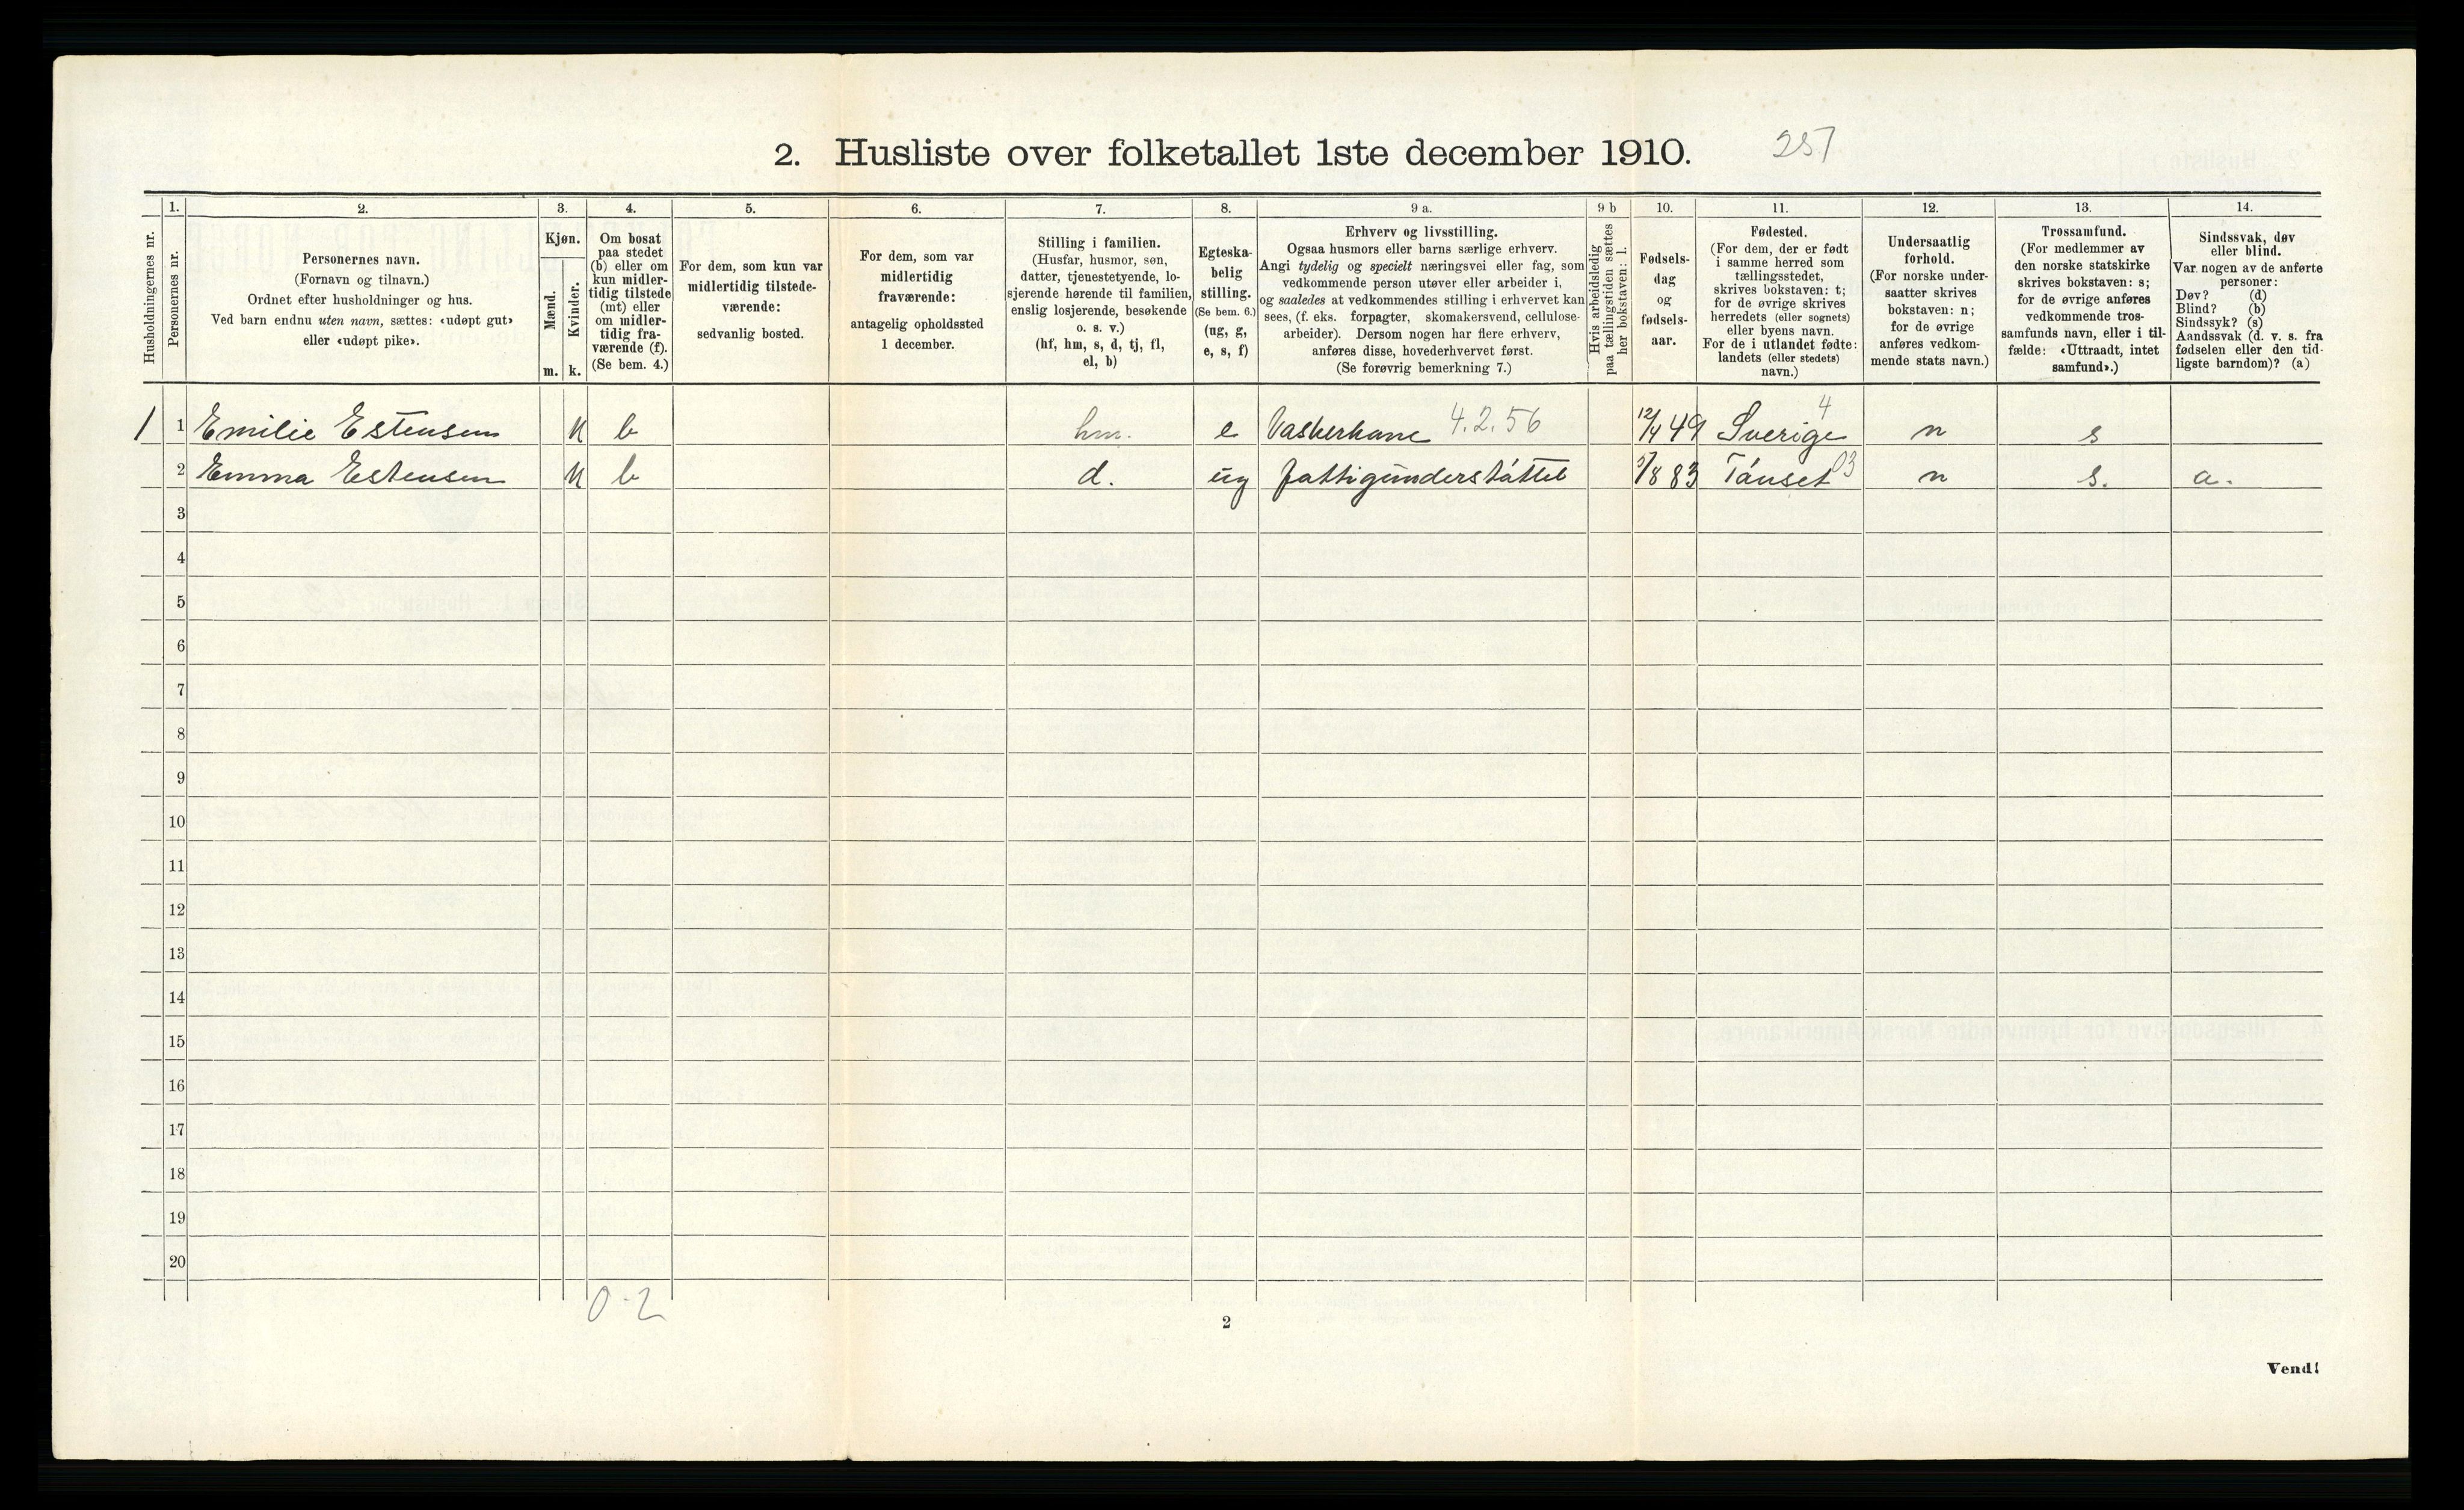 2. Husliste over folketallet 1ste december 1910. 257
Husholdningernes nr.
1.
Personernes nr.
2.
Personernes navn.
(Fornavn og tilnavn.)
Ordnet efter husholdninger og hus.
Ved barn endnu uten navn, sættes: «udøpt gut»
eller «udøpt pike».
3.
Kjøn.
Mænd.
Kvinder.
m. k.
4.
Om bosat
paa stedet
(b) eller om
kun midler-
tidig tilstede
(mt) eller
om midler-
tidig fra-
værende (f).
(Se bem. 4.)
5.
For dem, som kun var
midlertidig tilstede-
værende:
sedvanlig bosted.
6.
For dem, som var
midlertidig
fraværende:
antagelig opholdssted
1 december.
7.
Stilling i familien.
(Husfar, husmor, søn,
datter, tjenestetyende, lo-
sjerende hørende til familien,
enslig losjerende, besøkende
o. s. v.)
(hf, hm, s, d, tj, fl,
el, b)
8.
Egteska-
belig
stilling.
(Se bem. 6.)
(ug, g,
e, s, f)
9 a.
Erhverv og livsstilling.
Ogsaa husmors eller barns særlige erhverv.
Angi tydelig og specielt næringsvei eller fag, som
vedkommende person utøver eller arbeider i,
og saaledes at vedkommendes stilling i erhvervet kan
sees, (f. eks. forpagter, skomakersvend, cellulose-
arbeider). Dersom nogen har flere erhverv,
anføres disse, hovederhvervet først.
(Se forøvrig bemerkning 7.)
9 b
Hvis arbeidsledig
paa tællingstiden sættes
her bokstaven: l.
10.
Fødsels-
dag
og
fødsels-
aar.
11.
Fødested.
(For dem, der er født
i samme herred som
tællingsstedet,
skrives bokstaven: t;
for de øvrige skrives
herredets (eller sognets)
eller byens navn.
For de i utlandet fødte:
landets (eller stedets)
navn.)
12.
Undersaatlig
forhold.
(For norske under-
saatter skrives
bokstaven: n;
for de øvrige
anføres vedkom-
mende stats navn.)
13.
Trossamfund.
(For medlemmer av
den norske statskirke
skrives bokstaven: s;
for de øvrige anføres
vedkommende tros-
samfunds navn, eller i til-
fælde: «Uttraadt, intet
samfund».)
14.
Sindssvak, døv
eller blind.
Var nogen av de anførte
personer:
Døv? (d)
Blind? (b)
Sindssyk? (s)
Aandssvak (d. v. s. fra
fødselen eller den tid-
ligste barndom)? (a)
1 1 Emilie Estensen K b hm. e Vaskerkone 4.2.56 12/4 49 Sverige 4 n s
2 Emma Estensen K b d. ug fattigunderstáttet 5/8 83 Tánset 03 n s. a.
3
4
5
6
7
8
9
10
11
12
13
14
15
16
17
18
19
20
0-2
2
Vend!